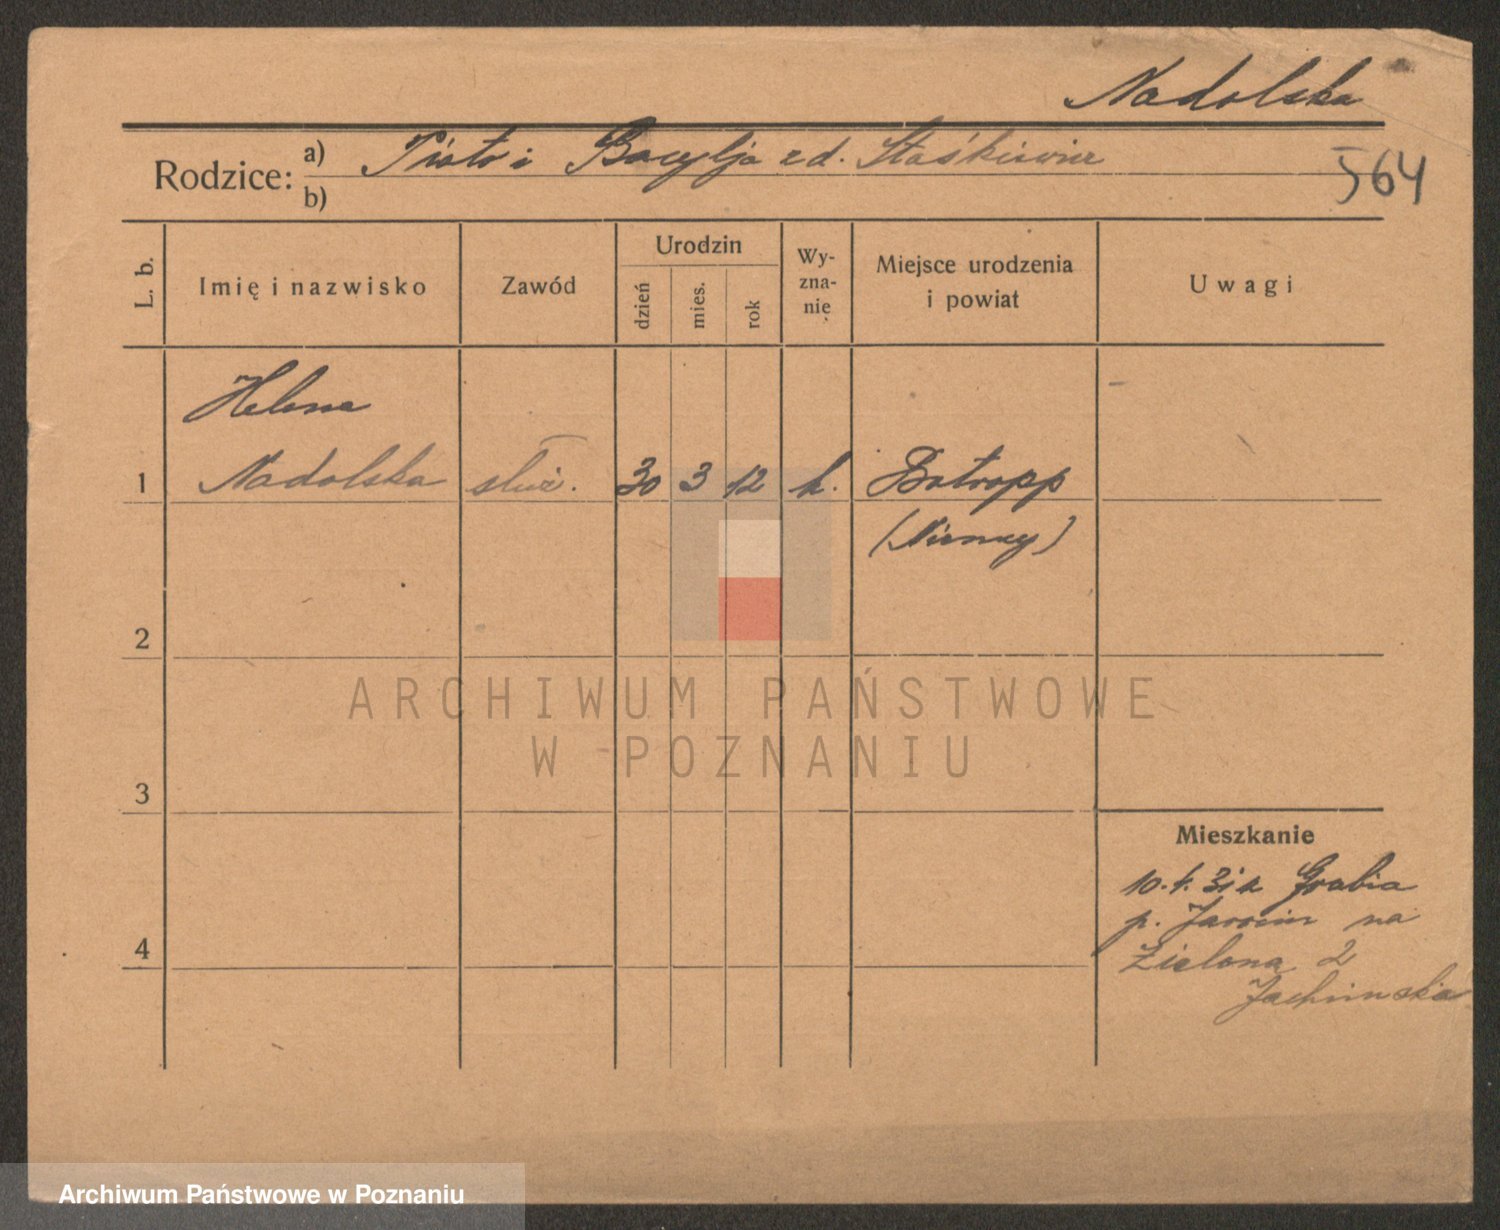 Nadolska
Rodzice: a) Piotr i Bacylja z d. Staśkiewicz
564
b)
L. b. Imię i nazwisko Zawód Urodzin dzień mies. rok Wyznanie Miejsce urodzenia i powiat Uwagi
Helena
1 Nadolska służ. 30 3 12 k. Botropp
(Niemcy)
2
ARCHIWUM PAŃSTWOWE
W POZNANIU
3
Mieszkanie
10. 31 z Grabia
p. Jarocin na
4 Zielona 2
Jachimska
Archiwum Państwowe w Poznaniu